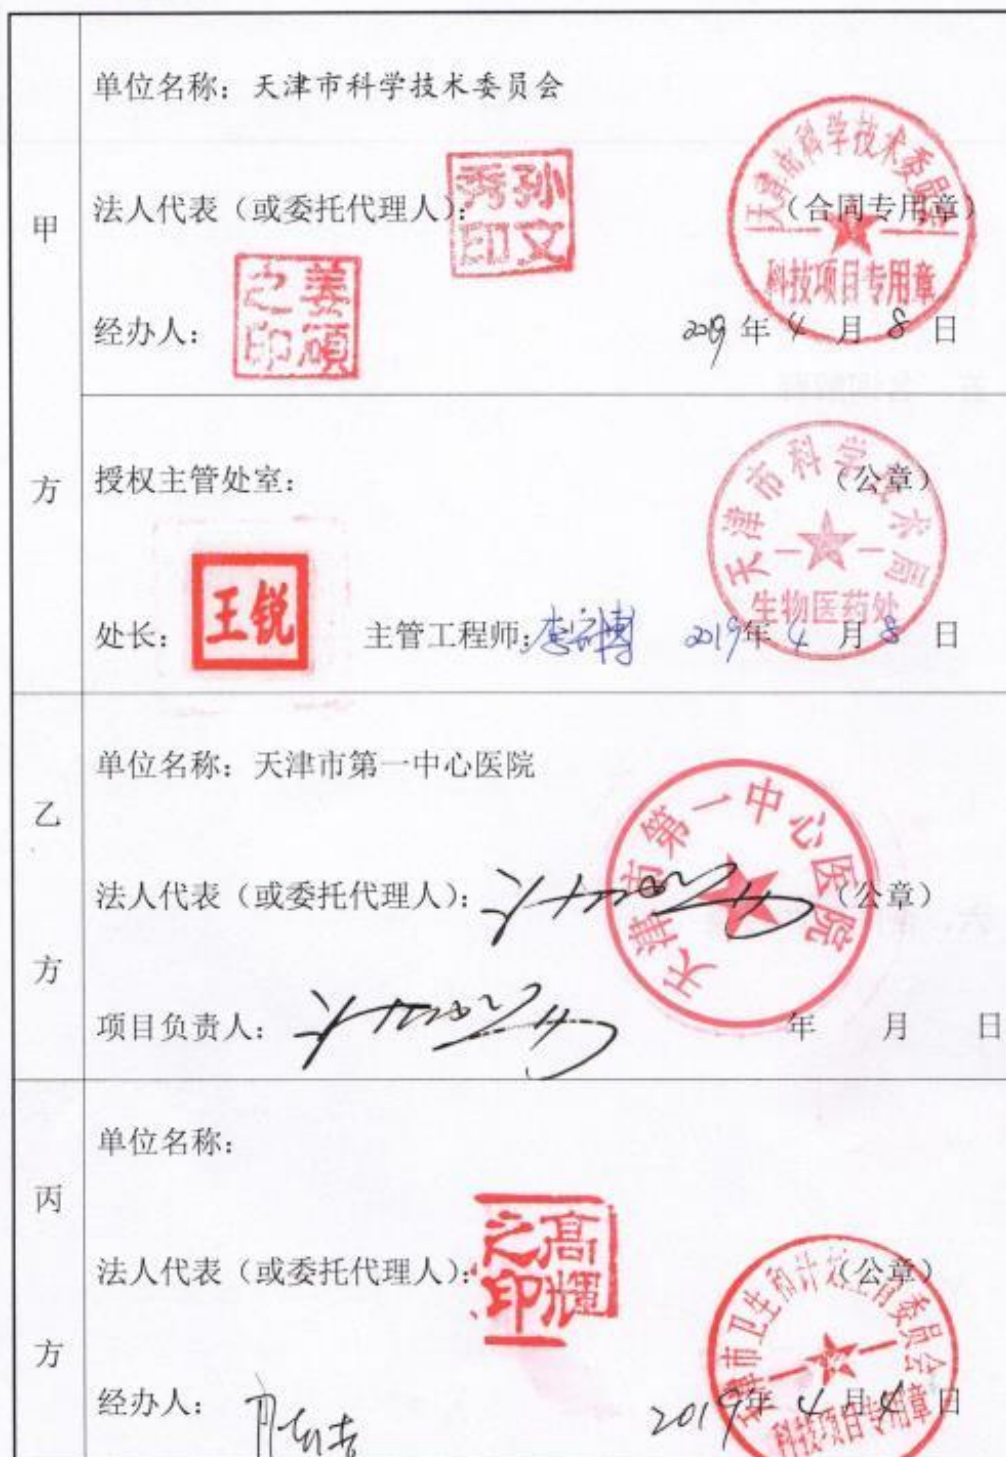 甲方
单位名称：天津市科学技术委员会
法人代表（或委托代理人）：
孙文秀印
天津市科学技术委员会
（合同专用章）
科技项目专用章
经办人：
姜硕之印
2019 年 4 月 8 日
授权主管处室：
（公章）
天津市科学技术局
生物医药处
处长：
王锐
主管工程师：
2019年 4 月 8 日
乙方
单位名称：天津市第一中心医院
天津市第一中心医院
法人代表（或委托代理人）：
（公章）
项目负责人：
年 月 日
丙方
单位名称：
法人代表（或委托代理人）：
高耀之印
（公章）
天津市卫生和计划生育委员会
科技项目专用章
经办人：
2019年 4 月 4 日